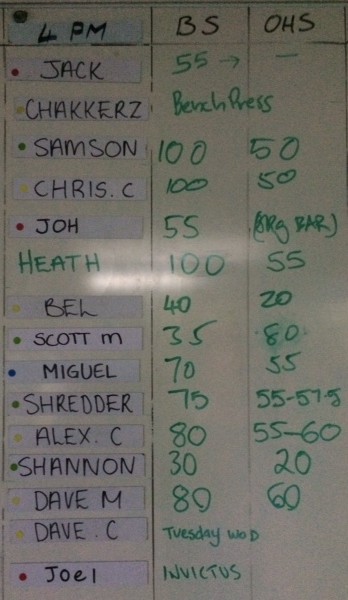 4 PM BS OHS
JACK 55 → —
CHAKKERZ Bench Press
SAMSON 100 50
CHRIS. C 100 50
JOH 55 (8Kg BAR)
HEATH 100 55
BEL 40 20
SCOTT m 35 80
MIGUEL 70 55
SHREDDER 75 55-57.5
ALEX. C 80 55-60
SHANNON 30 20
DAVE M 80 60
DAVE. C Tuesday WOD
Joel INVICTUS